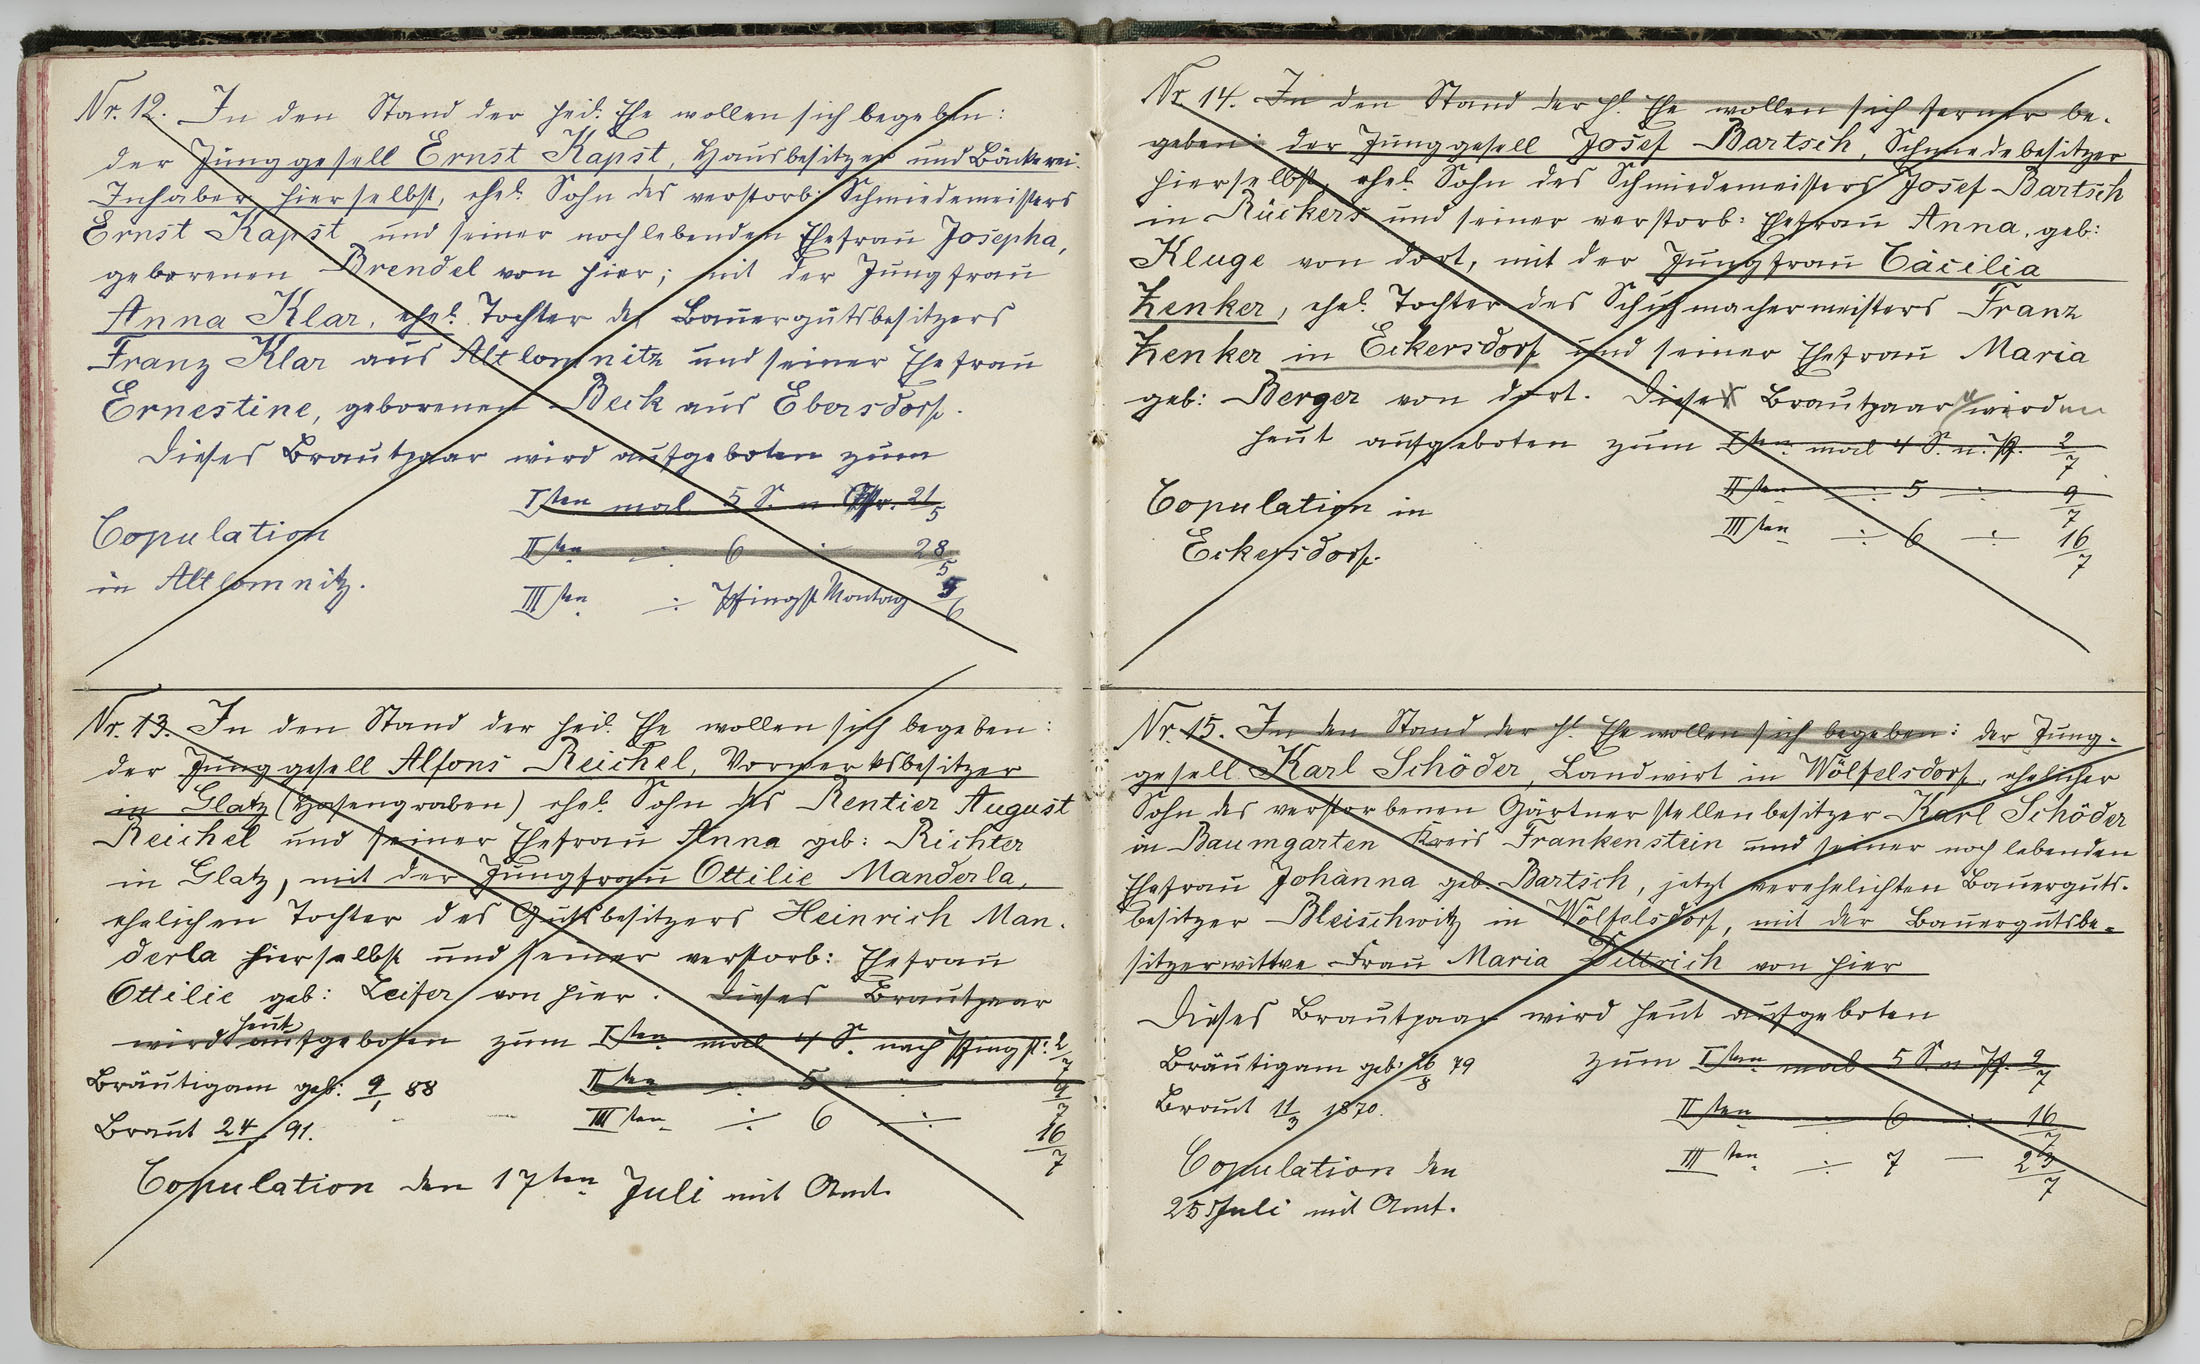 Nr. 12. In den Stand der heil. Ehe wollen sich begeben:
der Junggesell Ernst Kapst, Hausbesitzer und Bäckerei-
Inhaber hierselbst, ehel. Sohn des verstorb: Schmiedemeisters
Ernst Kapst und seiner noch lebenden Ehefrau Josepha,
geborenen Brendel von hier; mit der Jungfrau
Anna Klar, ehel. Tochter des Bauergutsbesitzers
Franz Klar aus Altlomnitz und seiner Ehefrau
Ernestine, geborenen Beck aus Ebersdorf.
Dieses Brautpaar wird aufgeboten zum
Isten mal 5 S. n. Ostr. 21/5
IIten ÷ 6 ÷ 28/5
IIIten ÷ Pfingst Montag 5/6
Copulation
in Altlomnitz.
Nr. 13. In den Stand der heil. Ehe wollen sich begeben:
der Junggesell Alfons Reichel, Vorwerksbesitzer
in Glatz (Hasengraben) ehel. Sohn des Rentier August
Reichel und seiner Ehefrau Anna geb: Richter
in Glatz, mit der Jungfrau Ottilie Manderla,
ehelichen Tochter des Gutsbesitzers Heinrich Man-
derla hierselbst und seiner verstorb: Ehefrau
Ottilie geb: Zeifer von hier. Dieses Brautpaar
wird heut aufgeboten zum Isten mal 4 S. nach Pfingst: 2/7
IIten ÷ 5 ÷ 9/7
IIIten ÷ 6 ÷ 16/7
Bräutigam geb: 9/1 88
Braut 24/ 91.
Copulation den 17ten Juli mit Amt.
Nr. 14. In den Stand der hl. Ehe wollen sich ferner be-
geben: der Junggesell Josef Bartsch, Schmiedebesitzer
hierselbst, ehel. Sohn des Schmiedemeisters Josef Bartsch
in Rückers und seiner verstorb: Ehefrau Anna, geb:
Kluge von dort, mit der Jungfrau Cäcilia
Zenker, ehel. Tochter des Schuhmachermeisters Franz
Zenker in Eckersdorf und seiner Ehefrau Maria
geb: Berger von dort. Diese Brautpaare werden
heut aufgeboten zum Isten mal 4 S. n. Pf. 2/7
IIten ÷ 5 ÷ 9/7
IIIten ÷ 6 ÷ 16/7
Copulation in
Eckersdorf.
Nr. 15. In den Stand der hl. Ehe wollen sich begeben: der Jung-
gesell Karl Schöder, Landwirt in Wölfelsdorf, ehelicher
Sohn des verstorbenen Gärtnerstellenbesitzer Karl Schöder
in Baumgarten Kreis Frankenstein und seiner noch lebenden
Ehefrau Johanna geb. Bartsch, jetzt verehelichten Bauerguts-
besitzer Bleischwitz in Wölfelsdorf, mit der Bauergutsbe-
sitzerwittwe Frau Maria Dittrich von hier
Dieses Brautpaar wird heut aufgeboten
zum Isten mal 5 S. n. Pf. 9/7
IIten ÷ 6 ÷ 16/7
IIIten ÷ 7 — 23/7
Bräutigam geb: 26/8 79
Braut 11/3 1870.
Copulation den
25 Juli mit Amt.